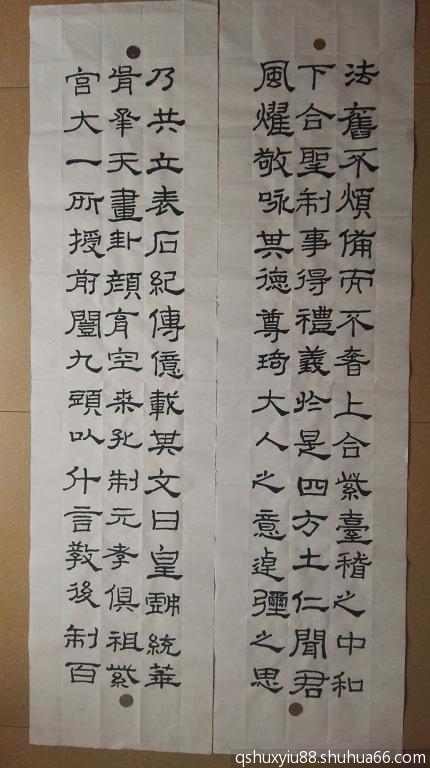 法舊不煩備而不奢上合紫臺稽之中和
下合聖制事得禮義於是四方土仁聞君
風燿敬咏其德尊琦大人之意逴彌之思
乃共立表石紀傳億載其文曰皇戲統華
胥承天畫卦顏育空桒孔制元孝俱祖紫
宮大一所授前闓九頭以什言敎後制百
qshuxyiu88.shuhua66.com